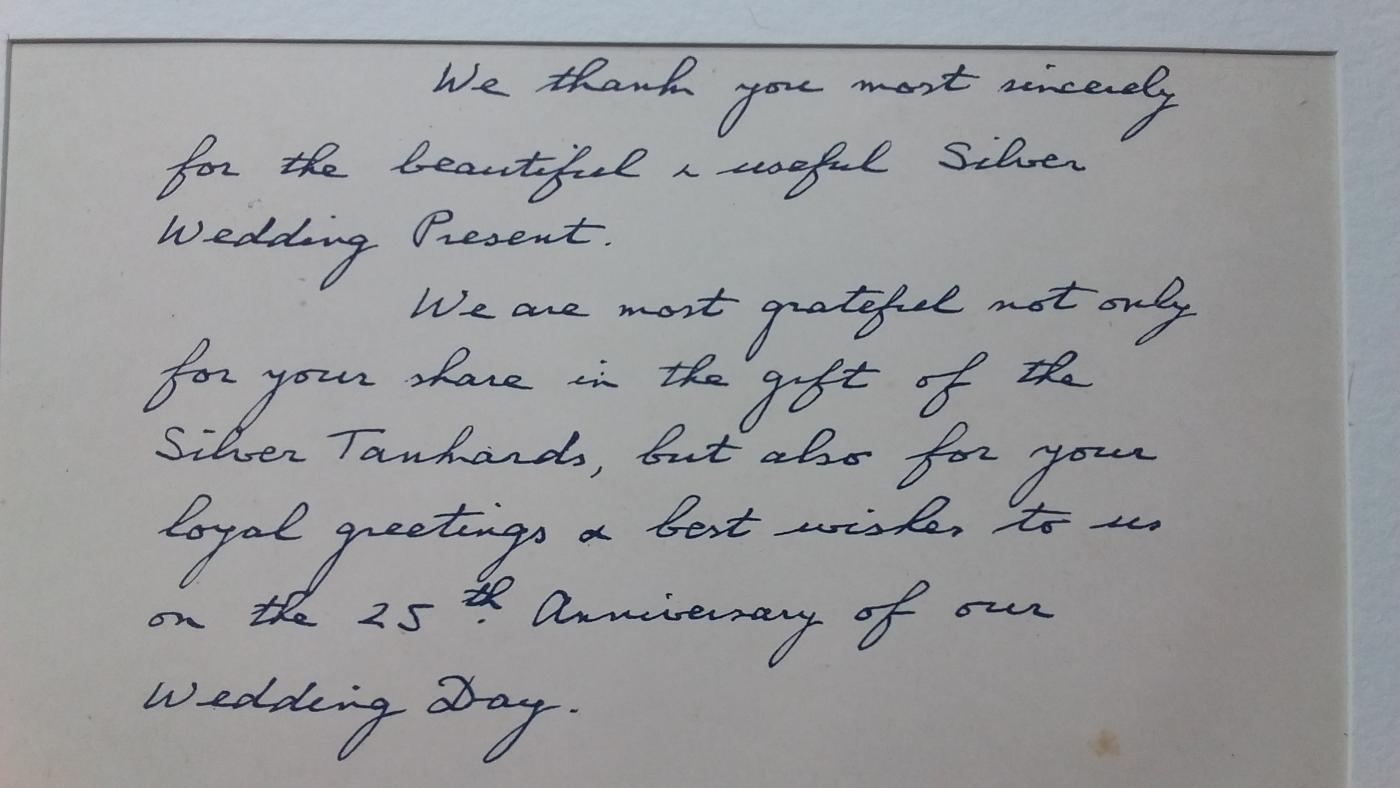 We thank you most sincerely
for the beautiful & useful Silver
Wedding Present.
We are most grateful not only
for your share in the gift of the
Silver Tankards, but also for your
loyal greetings & best wishes to us
on the 25th. Anniversary of our
Wedding Day.